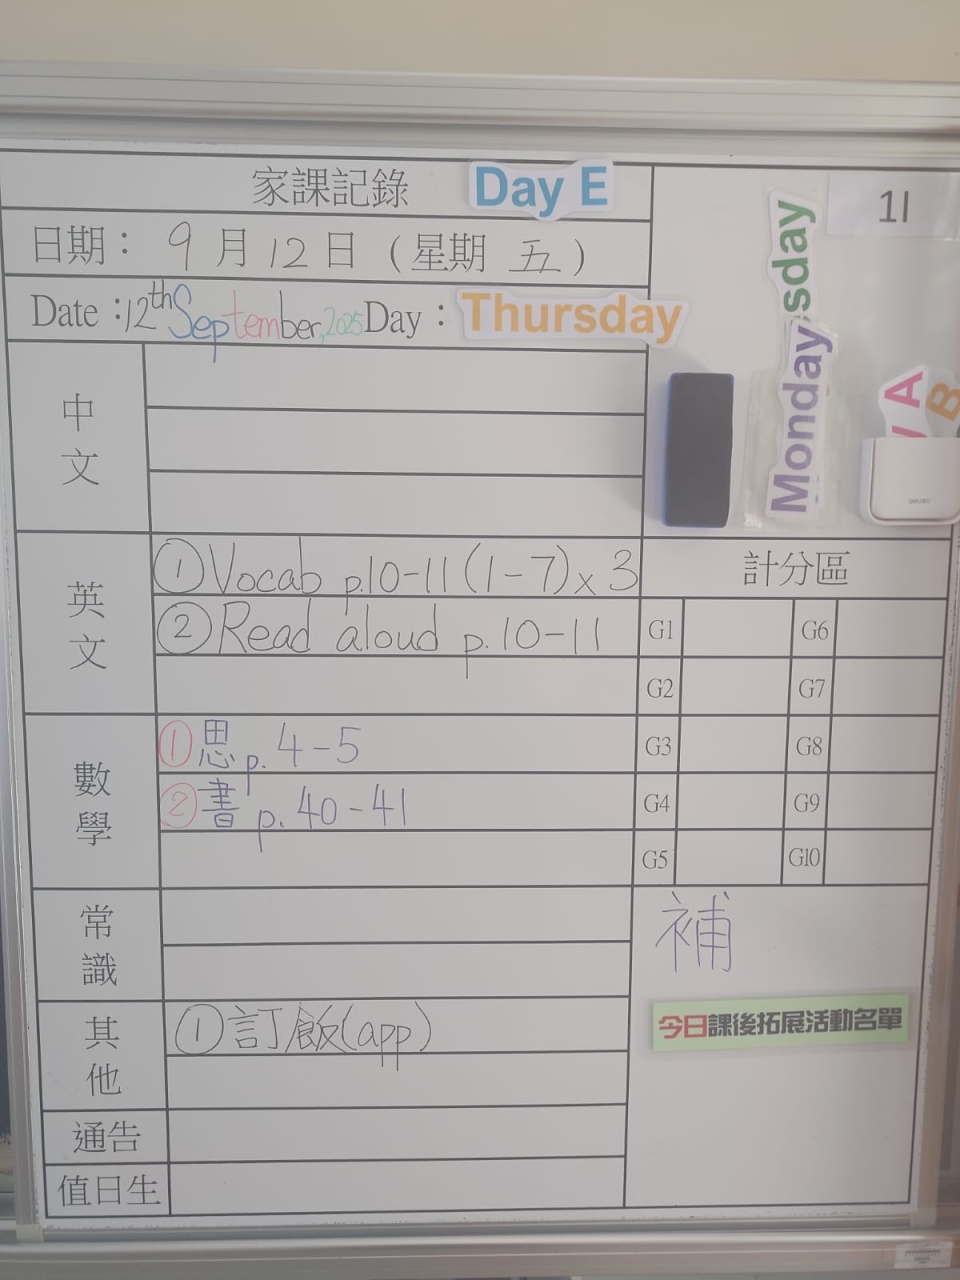 家課記錄 Day E
日期： 9 月 12 日 (星期 五)
Date :12th September, 2025 Day : Thursday
sday
Monday
1I
A
B
deli
中文
英文
①Vocab p.10-11 (1-7) x 3
②Read aloud p.10-11
數學
①思 p. 4-5
②書 p. 40-41
常識
其他
①訂飯(app)
通告
值日生
計分區
G1 G6
G2 G7
G3 G8
G4 G9
G5 G10
補
今日課後拓展活動名單